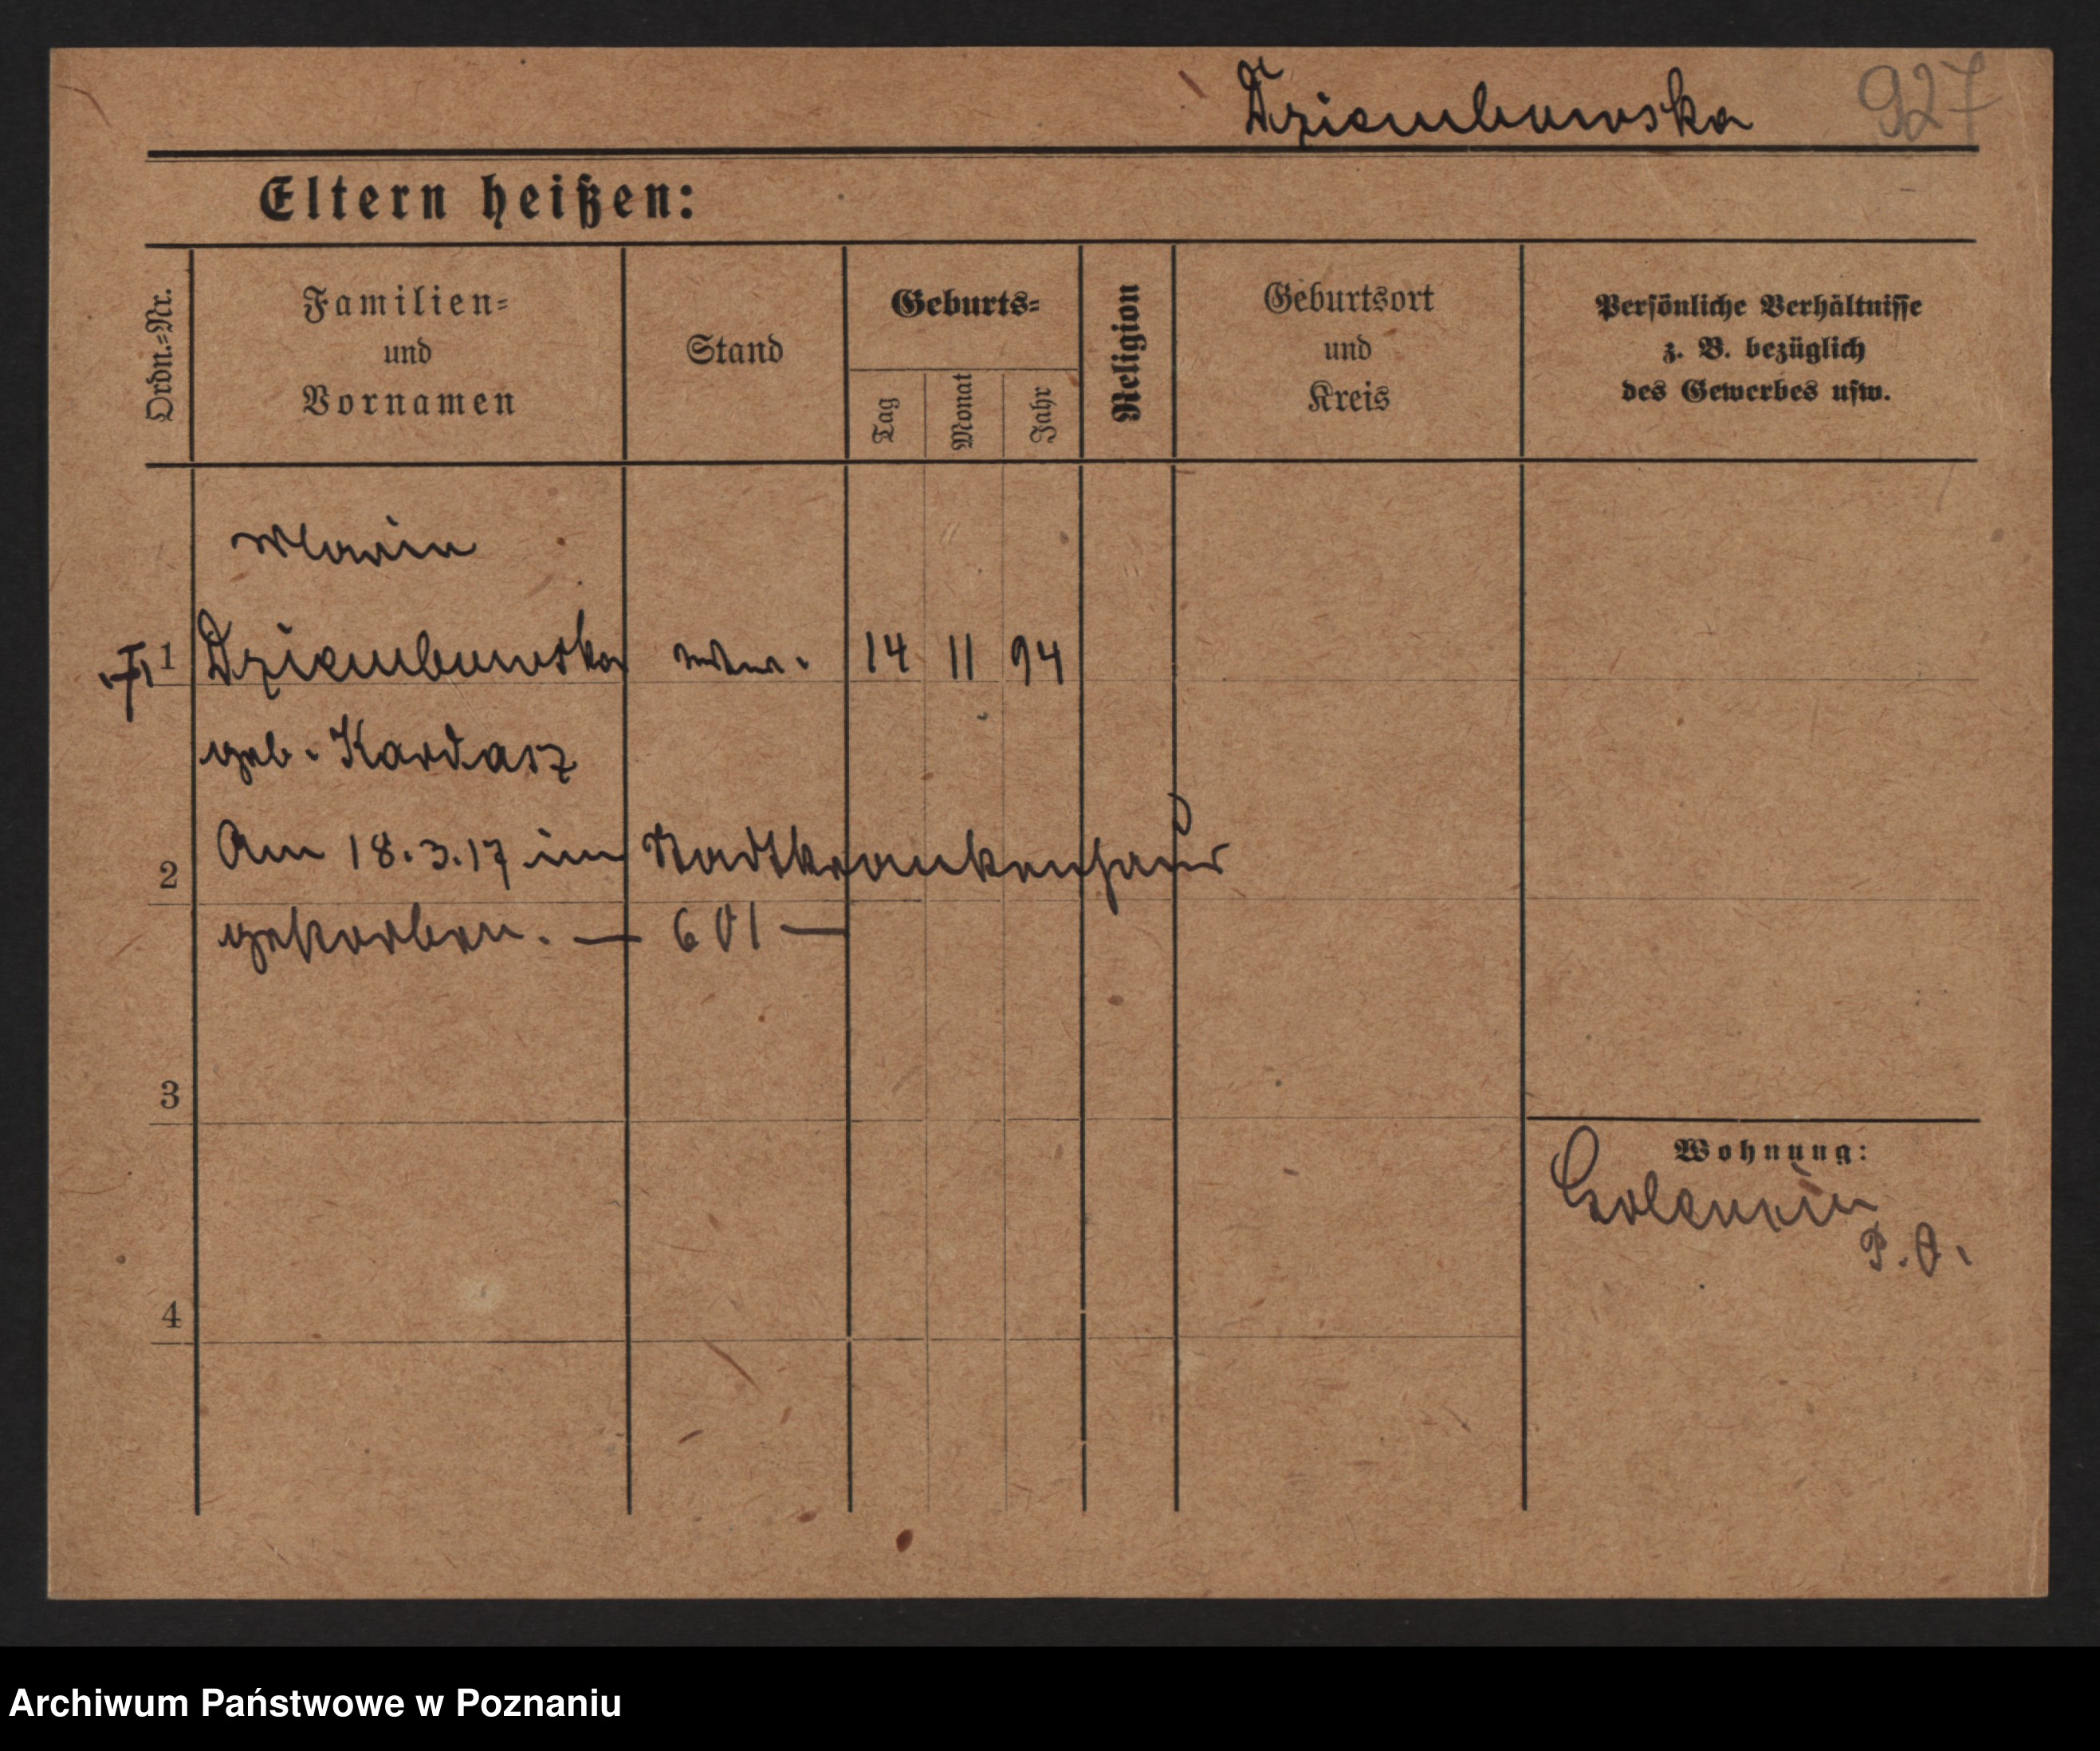 Dziembowska 927
Eltern heißen:
Ordn.=Nr.
Familien=
und
Vornamen
Stand
Geburts=
Tag
Monat
Jahr
Religion
Geburtsort
und
Kreis
Persönliche Verhältnisse
z. B. bezüglich
des Gewerbes usw.
Maria
1 Dziembowska 14 11 94
geb. Kardasz
2 Am 18.3.17 im Stadtkrankenhaus
gestorben. — 601 —
3
Wohnung:
Golencin
P.O.
4
Archiwum Państwowe w Poznaniu